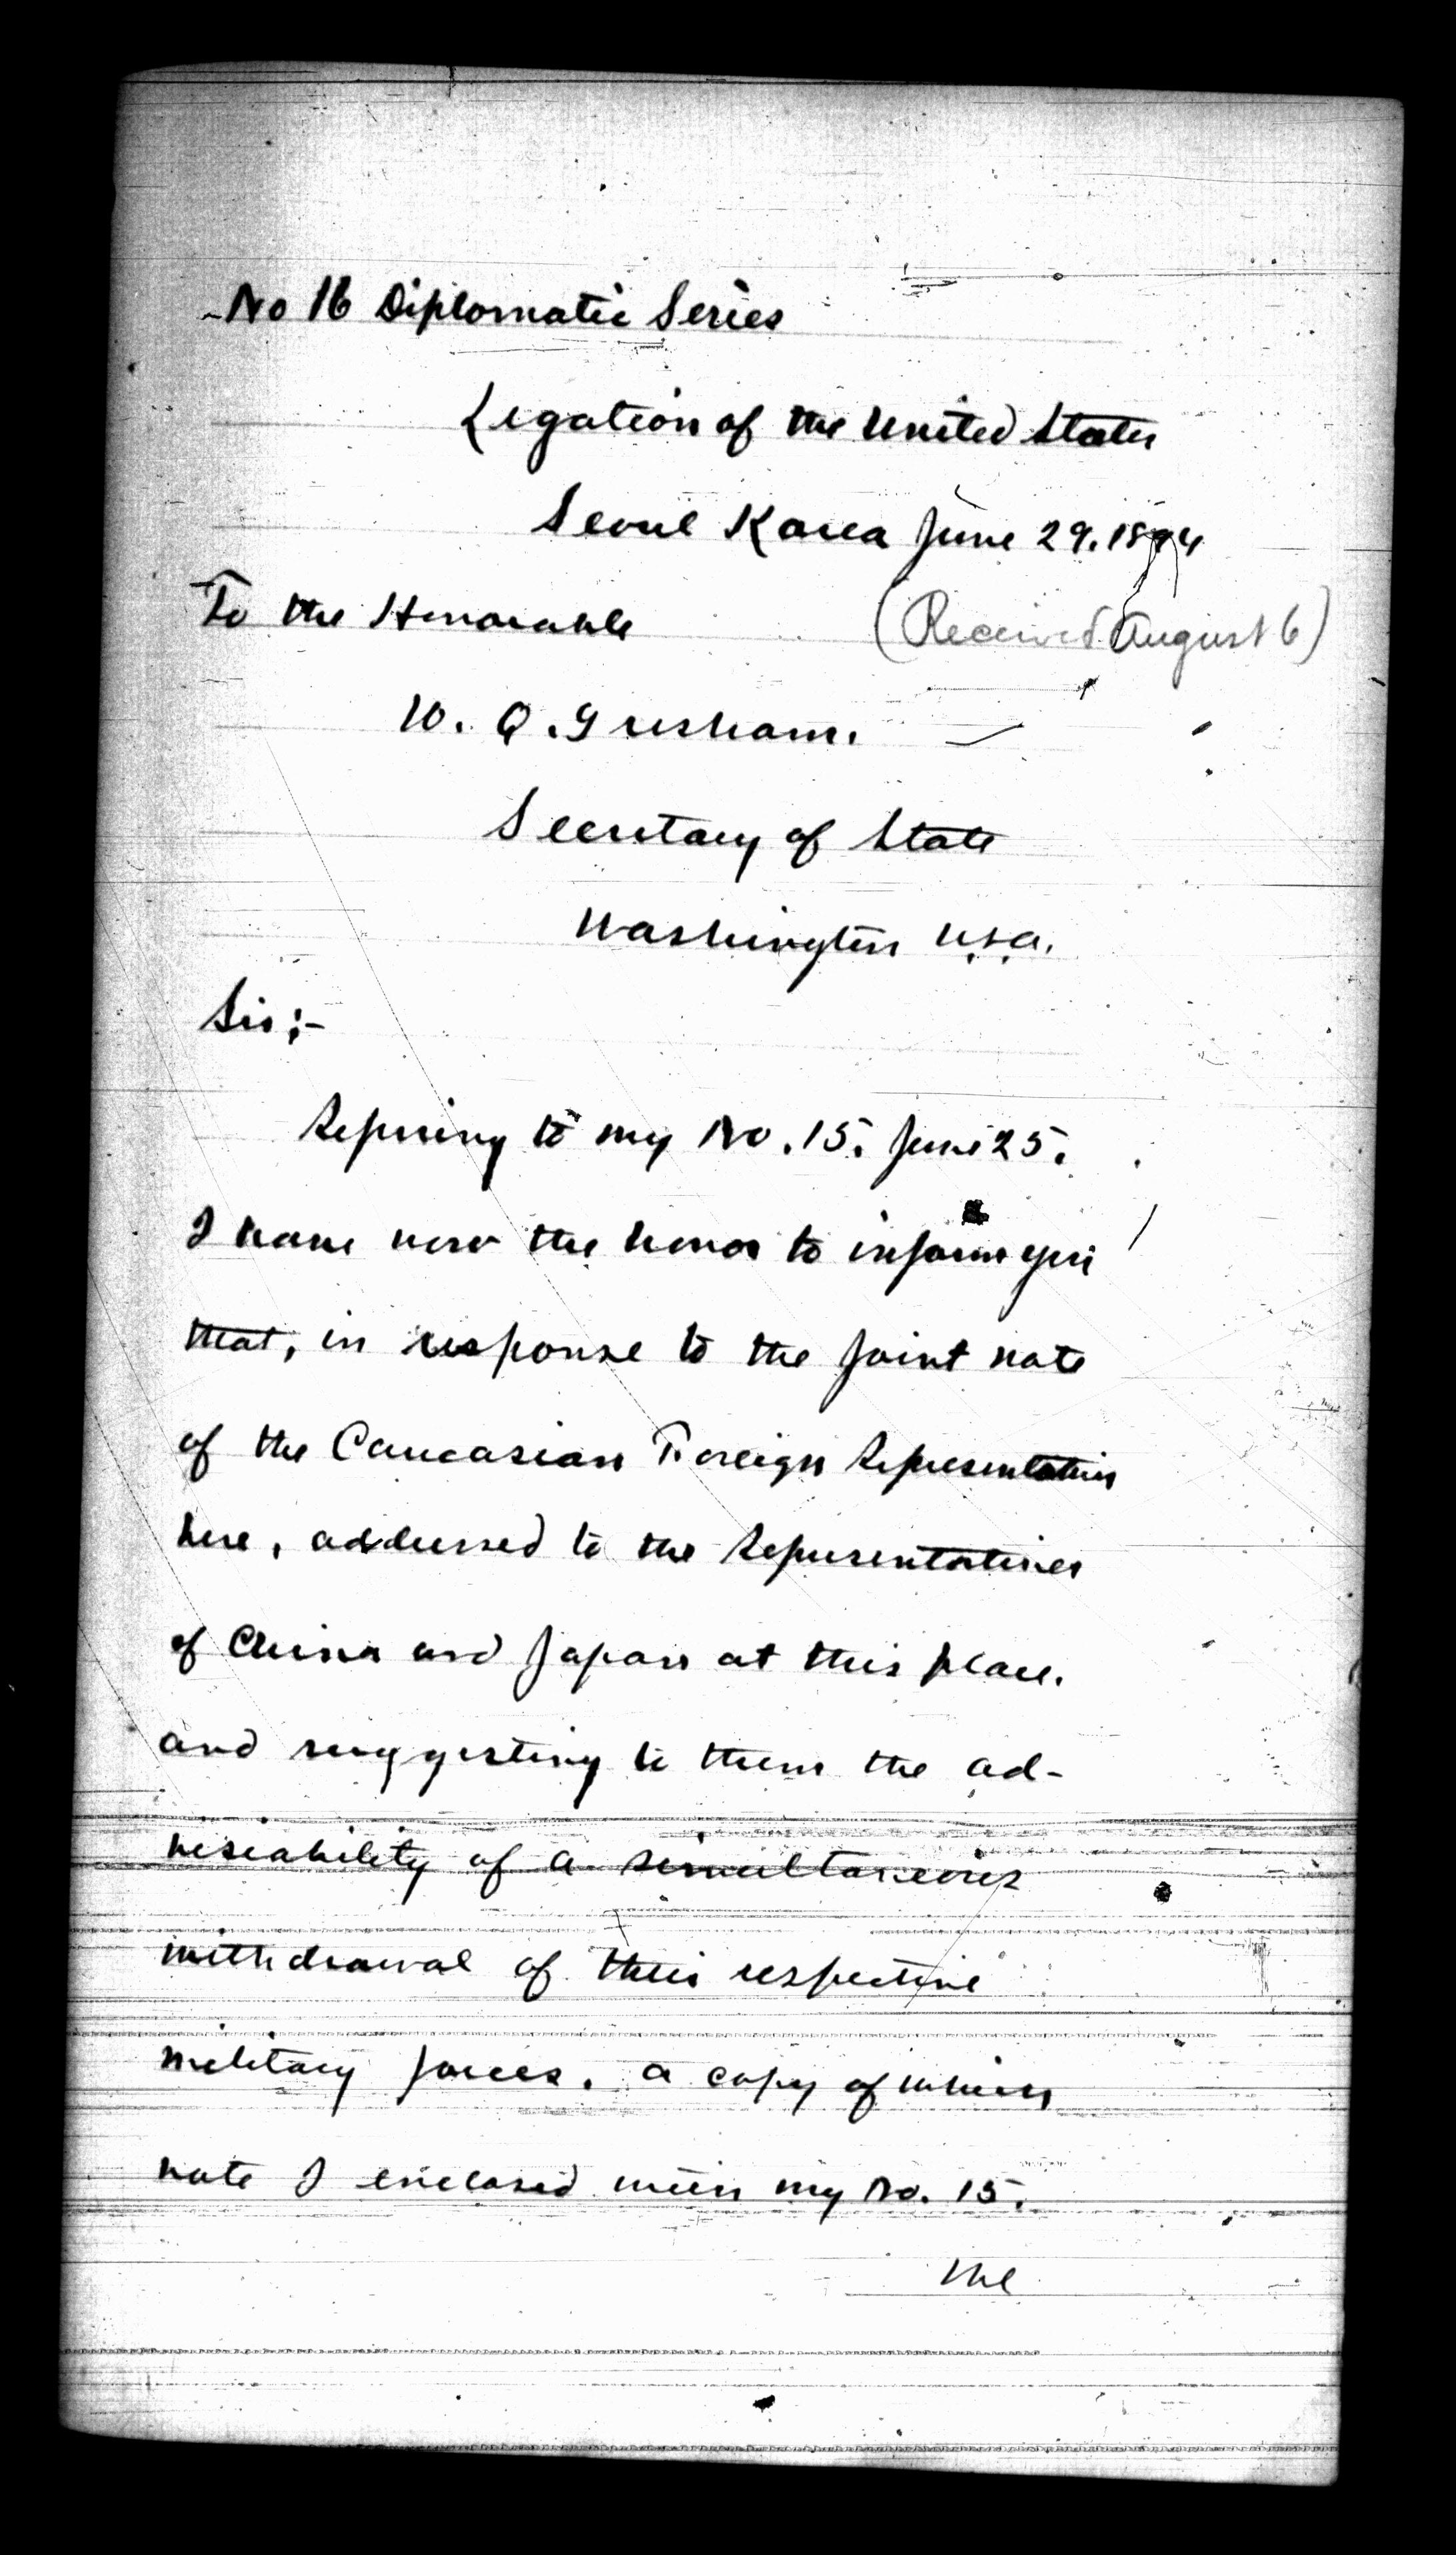 No 16 Diplomatic Series
Legation of the United States
Seoul Korea June 29. 1894
To the Honorable
(Received August 6)
W. Q. Gresham.
Secretary of State
Washington U.S.A.
Sir:-
Refering to my No. 15. June 25.
I have now the honor to inform you
that, in response to the joint note
of the Caucasian Foreign Representatives
here, addressed to the Representatives
of China and Japan at this place.
and suggesting to them the ad-
visiability of a simultaneous
withdrawal of their respective
military forces. a copy of which
note I enclosed with my No. 15.
The